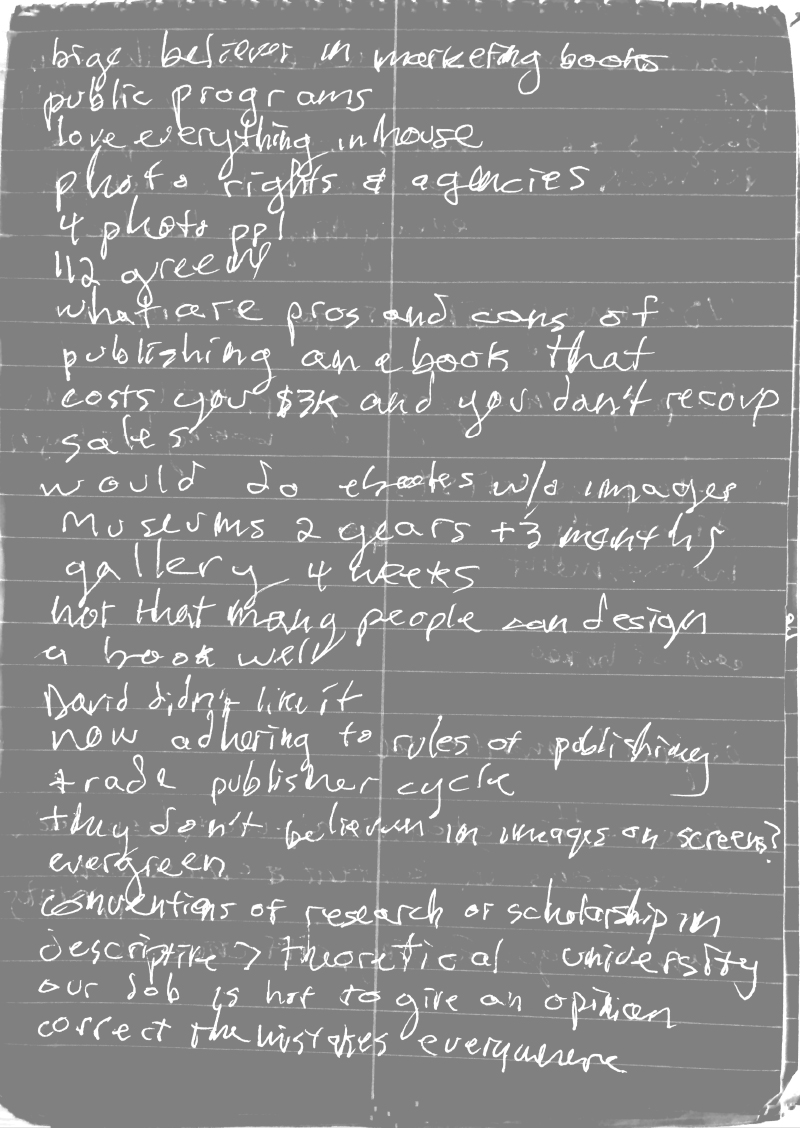 big believer in marketing books
public programs
love everything in house
photo rights & agencies.
4 photo pp!
112 green
what are pros and cons of
publishing an ebook that
costs you $3K and you don't recoup
sales
would do ebooks w/o images
Museums 2 years +3 months
gallery 4 weeks
not that many people can design
a book well
David didn't like it
now adhering to rules of publishing
trade publisher cycle
they don't believe in images on screens?
evergreen
conventions of research or scholarship in
descriptive > theoretical university
our job is not to give an opinion
correct the mistakes everywhere